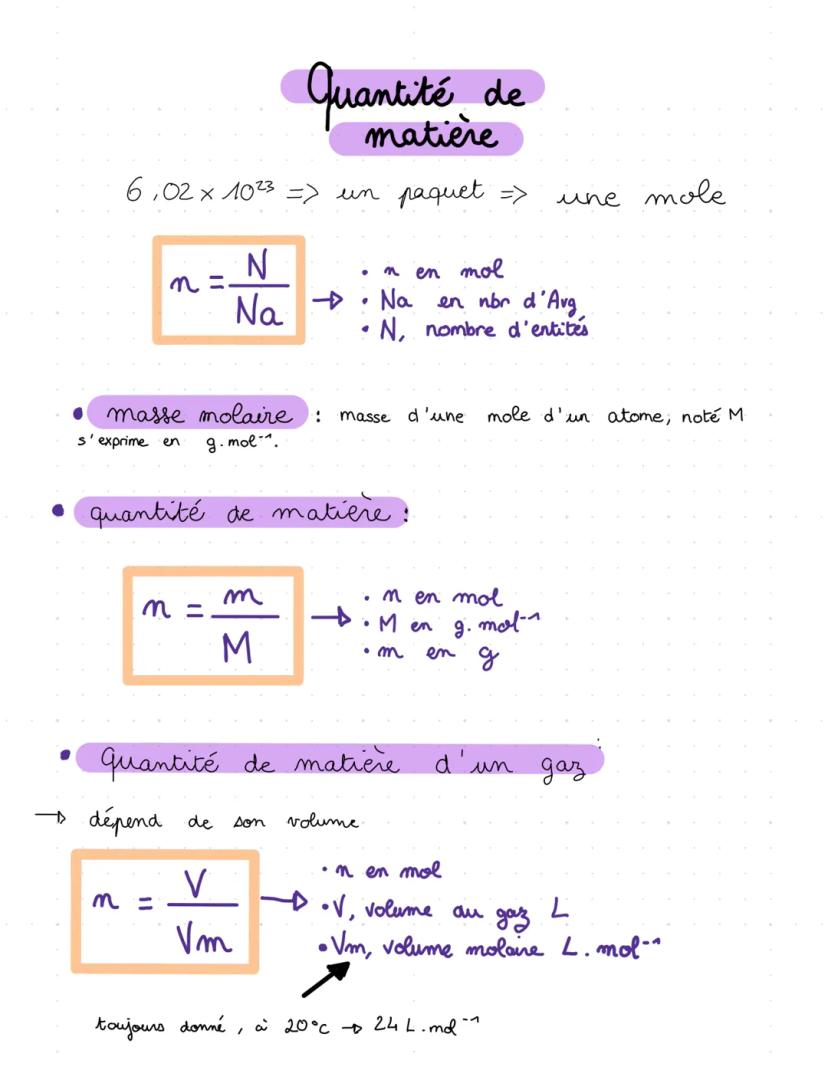 Quantité de
matière
6,02 x 10²³ => un paquet => une mole
n = N / Na → • n en mol
• Na en nbr d'Avg
• N, nombre d'entités
• masse molaire : masse d'une mole d'un atome, noté M
s'exprime en g.mol⁻¹.
• quantité de matière :
n = m / M → • n en mol
• M en g.mol⁻¹
• m en g
• Quantité de matière d'un gaz :
→ dépend de son volume
n = V / Vm → • n en mol
• V, volume au gaz L
• Vm, volume molaire L.mol⁻¹
toujours donné, à 20°c → 24 L.mol⁻¹